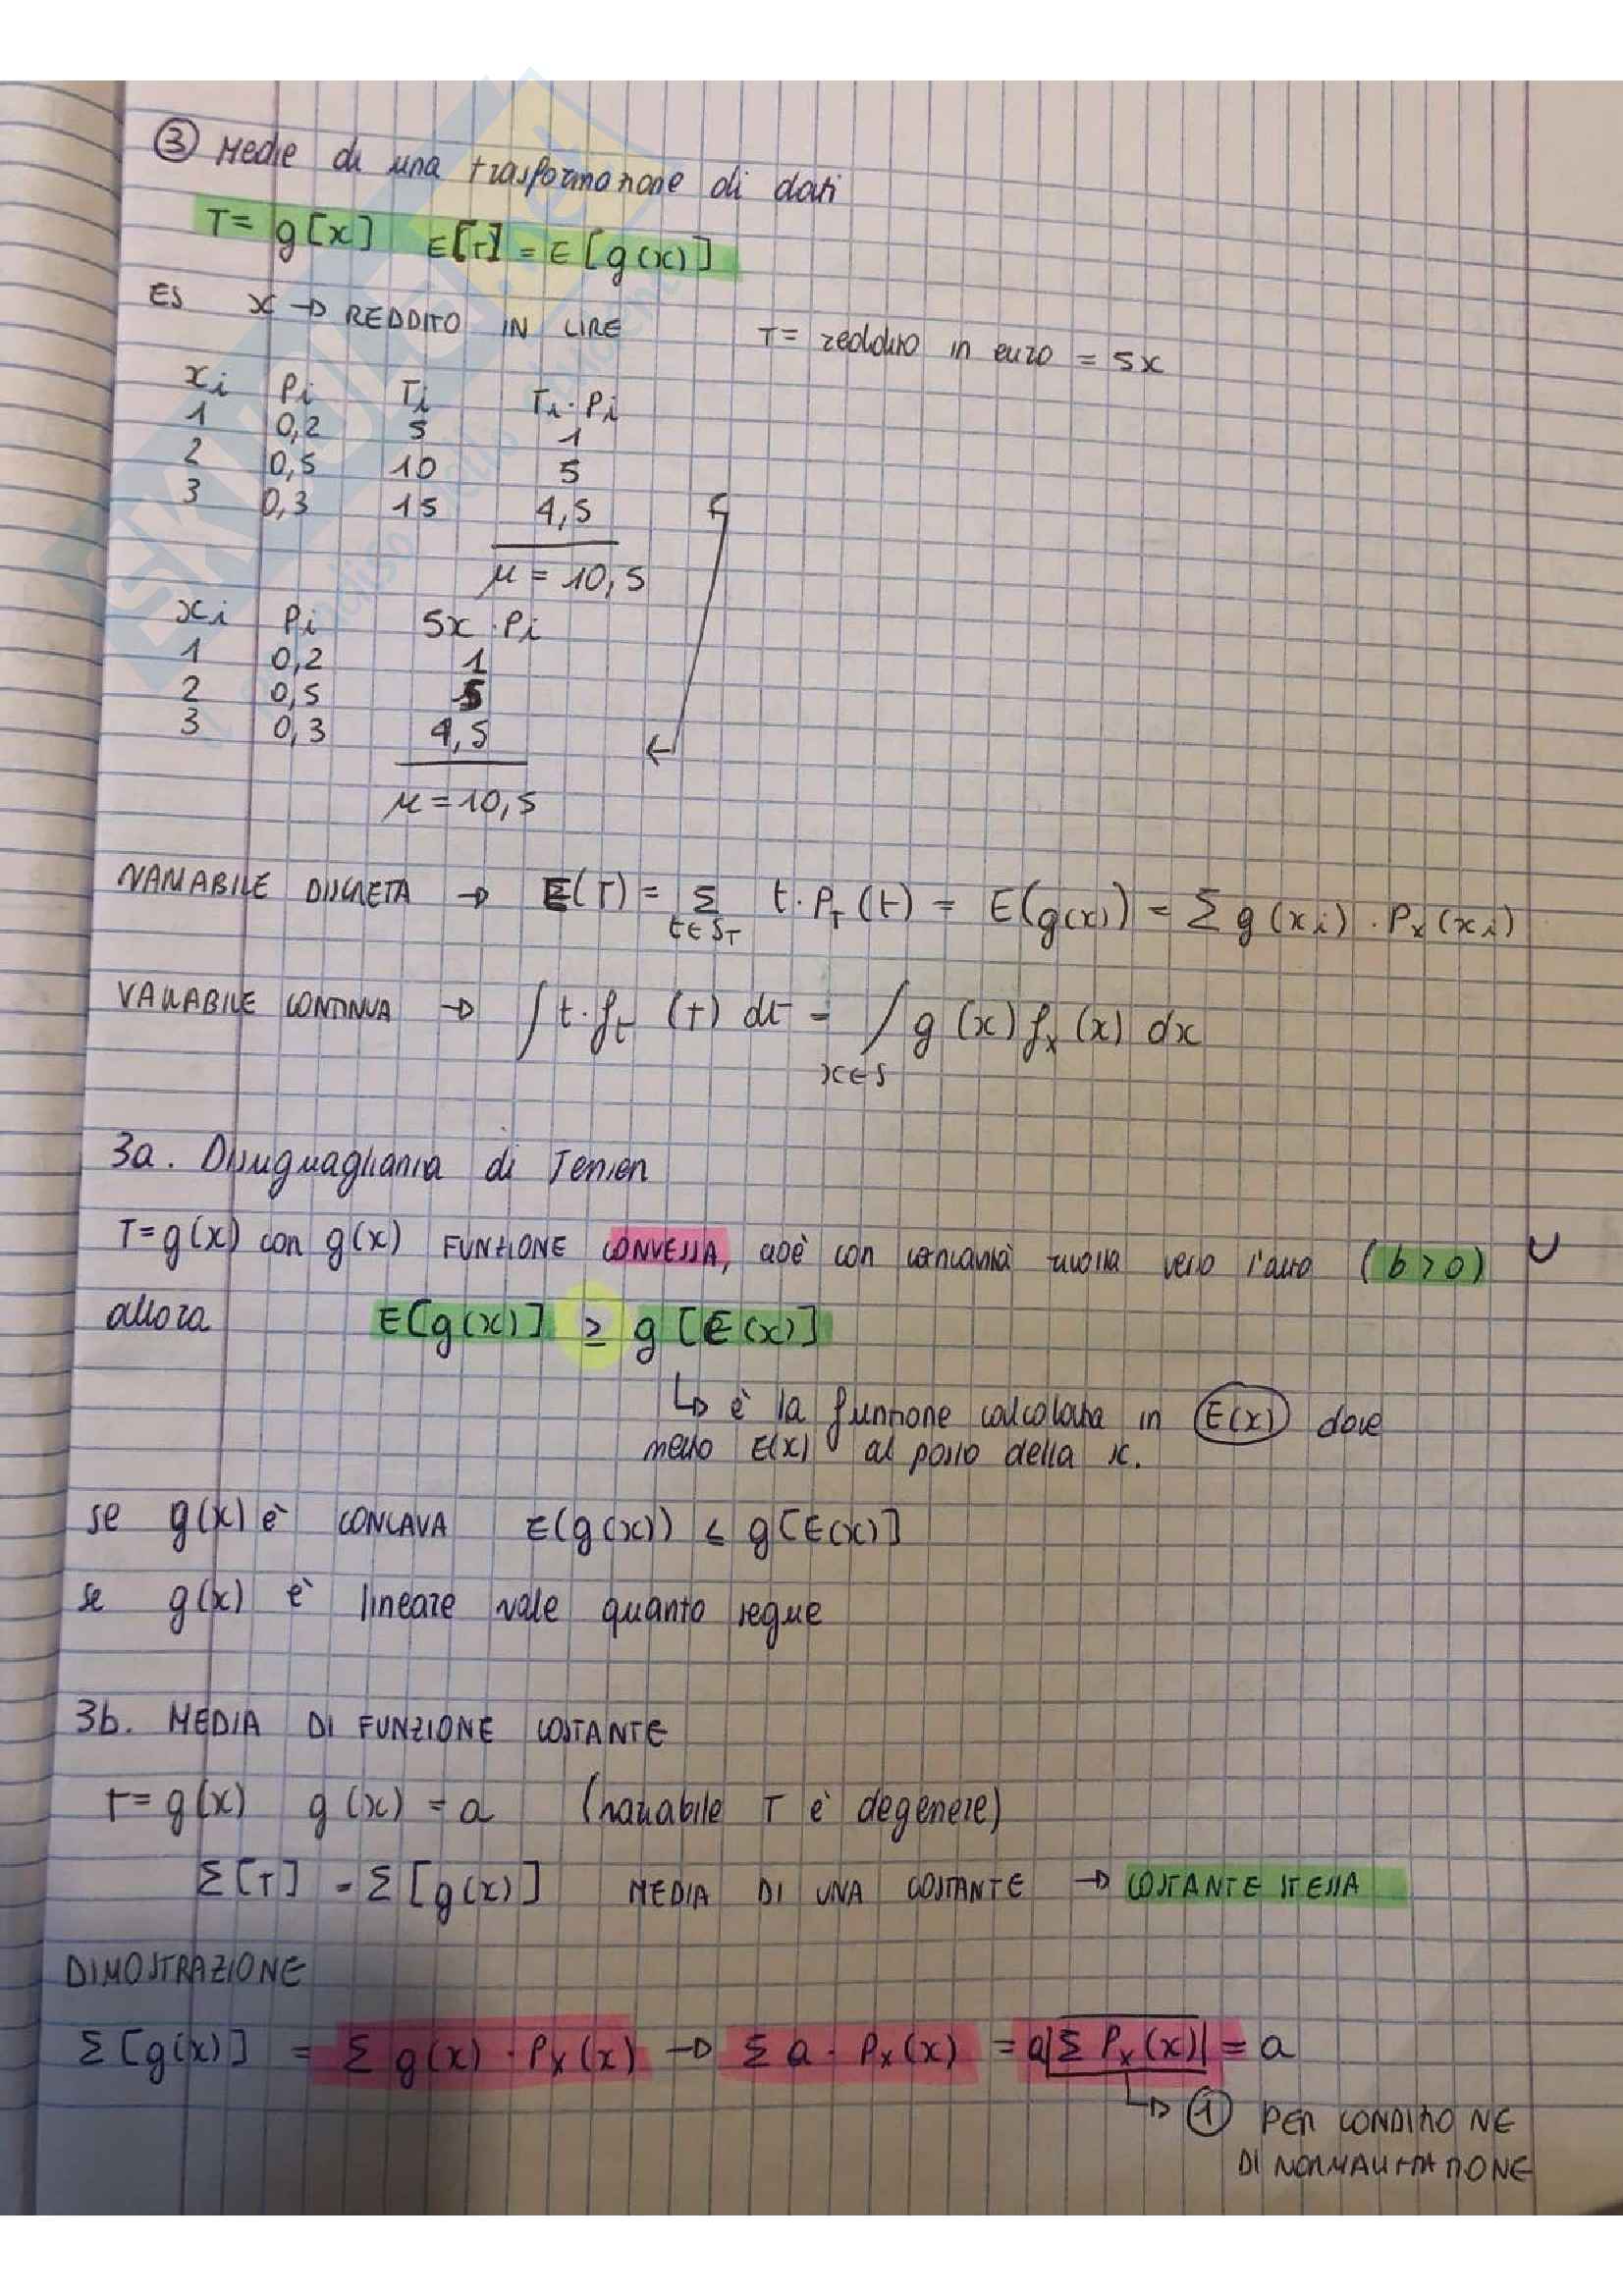 ③ Medie di una trasformazione di dati
T = g[x] E[T] = E[g(x)]
ES x → REDDITO IN LIRE T = reddito in euro = 5x
xi Pi Ti Ti · Pi
1 0,2 5 1
2 0,5 10 5
3 0,3 15 4,5
μ = 10,5
xi Pi 5x · Pi
1 0,2 1
2 0,5 5
3 0,3 4,5
μ = 10,5
VARIABILE DISCRETA → E(T) = Σ t · P_T (t) = E(g(x)) = Σ g(xi) · Px(xi)
t∈S_T
VARIABILE CONTINUA → ∫ t · f_t (t) dt = ∫ g(x) f_x (x) dx
x∈S
3a. Disuguaglianza di Jensen
T = g(x) con g(x) FUNZIONE CONVESSA, cioè con concavità rivolta verso l'alto (b > 0) ∪
allora E[g(x)] ≥ g[E(x)]
↳ è la funzione calcolata in E(x) dove
metto E(x) al posto della x.
se g(x) è CONCAVA E(g(x)) ≤ g[E(x)]
se g(x) è lineare vale quanto segue
3b. MEDIA DI FUNZIONE COSTANTE
T = g(x) g(x) = a (variabile T è degenere)
Σ[T] = Σ[g(x)] MEDIA DI UNA COSTANTE → COSTANTE STESSA
DIMOSTRAZIONE
Σ[g(x)] = Σ g(x) · Px(x) → Σ a · Px(x) = a|Σ Px(x)| = a
↳ ① PER CONDIZIONE
DI NORMALIZZAZIONE